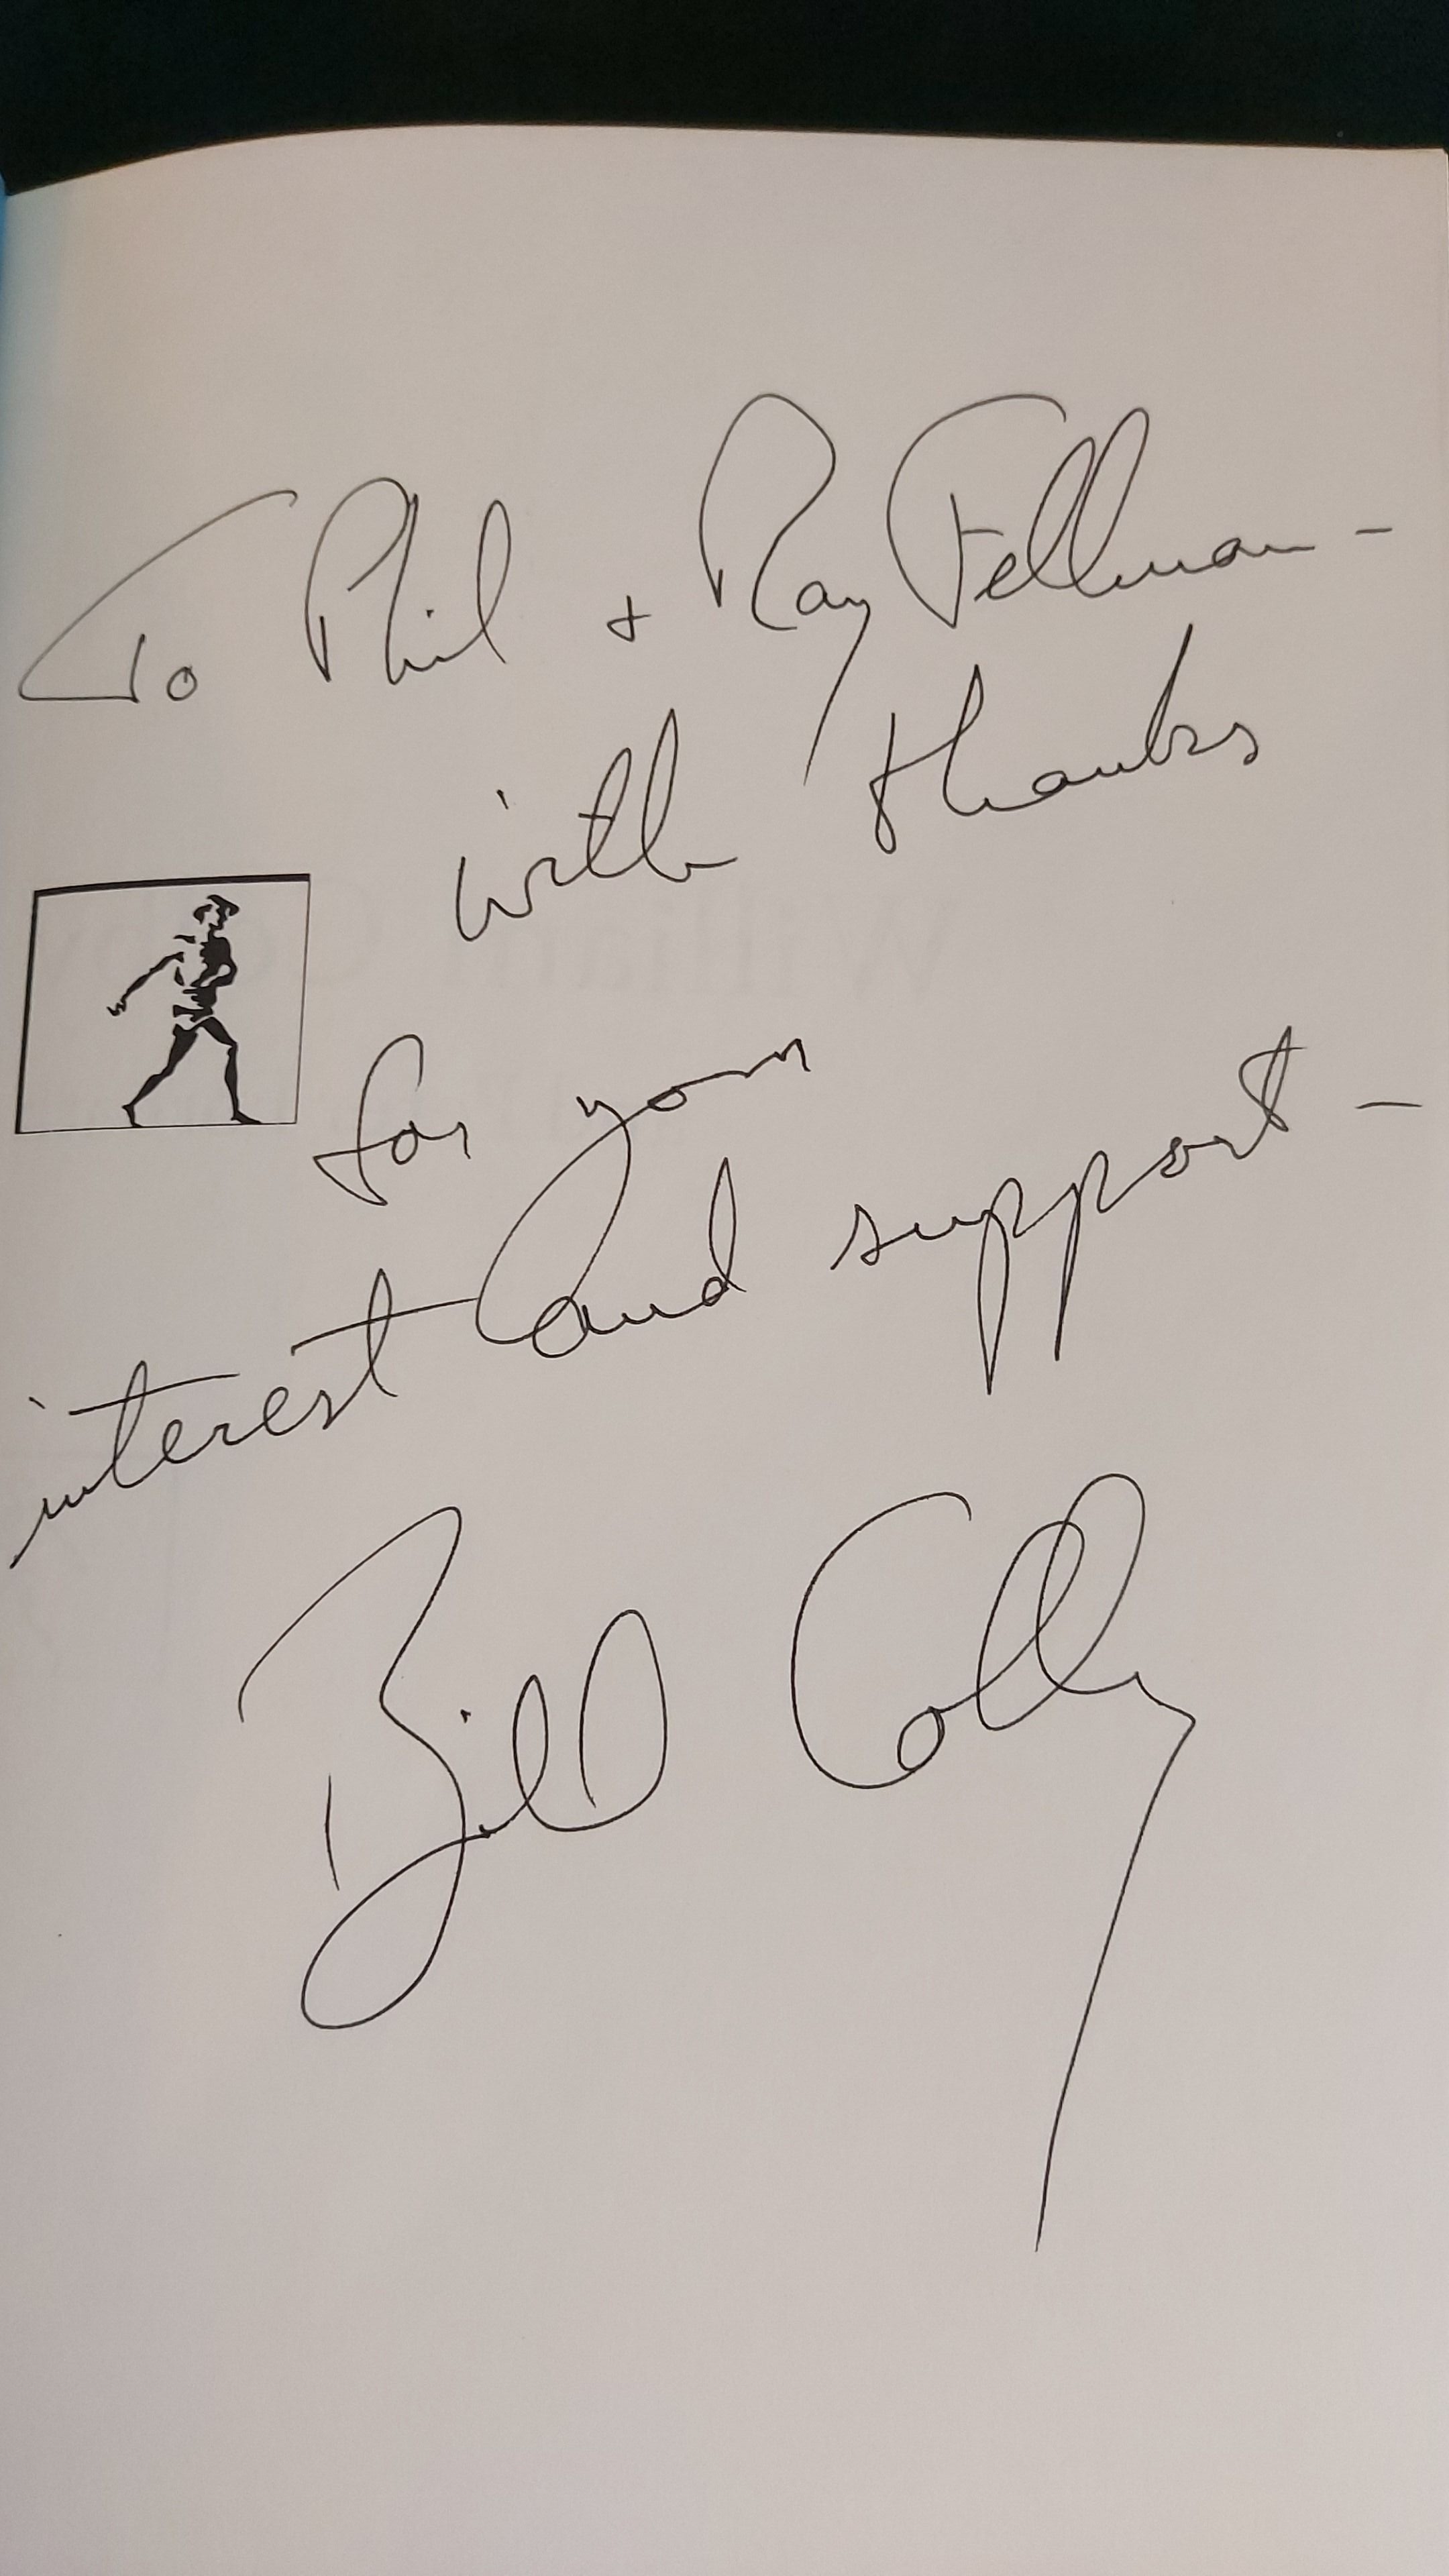 To Phil + Ray Fellman -
with thanks
for your
interest and support -
Bill Colby